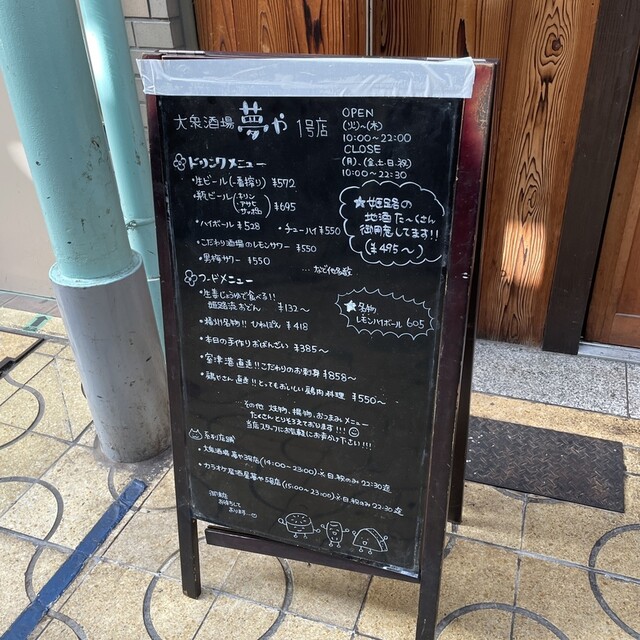 大衆酒場 夢や 1号店
OPEN
(火)~(木)
10:00~22:00
CLOSE
(月)、(金、土日、祝)
10:00~22:30
ドリンクメニュー
・生ビール(一番搾り) ¥572
・瓶ビール(キリン アサヒ サッポロ) ¥695
・ハイボール ¥528 ・チューハイ ¥550
・こだわり酒場のレモンサワー ¥550
・黒梅サワー ¥550
...など他多数
★姫路の
地酒た~くさん
御用意してます!!
(¥495~)
フードメニュー
・生姜じょうゆで食べる!!
姫路流おでん ¥132~
・播州名物!! ひねぽん ¥418
・本日の手作りおばんざい ¥385~
・室津港直送!! こだわりのお刺身 ¥858~
・鶏やさん直送!! とってもおいしい鶏肉料理 ¥550~
☆名物
レモンハイボール 605
その他 焼物、揚物、おつまみメニュー
たくさんとりそろえております!!!
当店スタッフにお気軽にお申付け下さい!!!
系列店舗
・大衆酒場 夢や3号店(14:00~23:00)※日、祝のみ22:30迄
・カラオケ居酒屋夢や5号店(15:00~23:00)※日、祝のみ22:30迄
御来店
お待ちして
おります